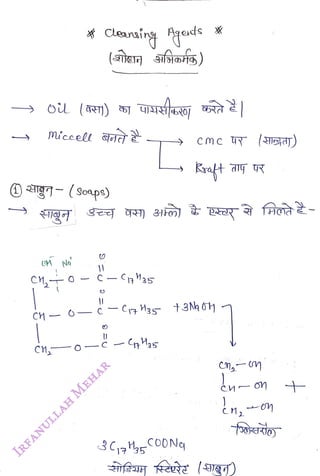 * Cleansing Agents *
(शोधन अभिकर्मक)
→ Oil (वसा) का पायसीकरण करते है।
→ Miccell बनते है → CMC पर (सान्द्रता)
→ Kraft ताप पर
① साबुन - (Soaps)
→ साबुन उच्च वसा अम्लो के एस्टर से मिलते है -
O
OH Na
CH2 - O - C - C17H35
O
CH - O - C - C17H35 + 3NaOH
O
CH2 - O - C - C17H35
CH2 - OH
CH - OH +
CH2 - OH
ग्लिसरॉल
3C17H35COONa
सोडियम स्टिएरेट (साबुन)
IRFANULLAH MEHAR